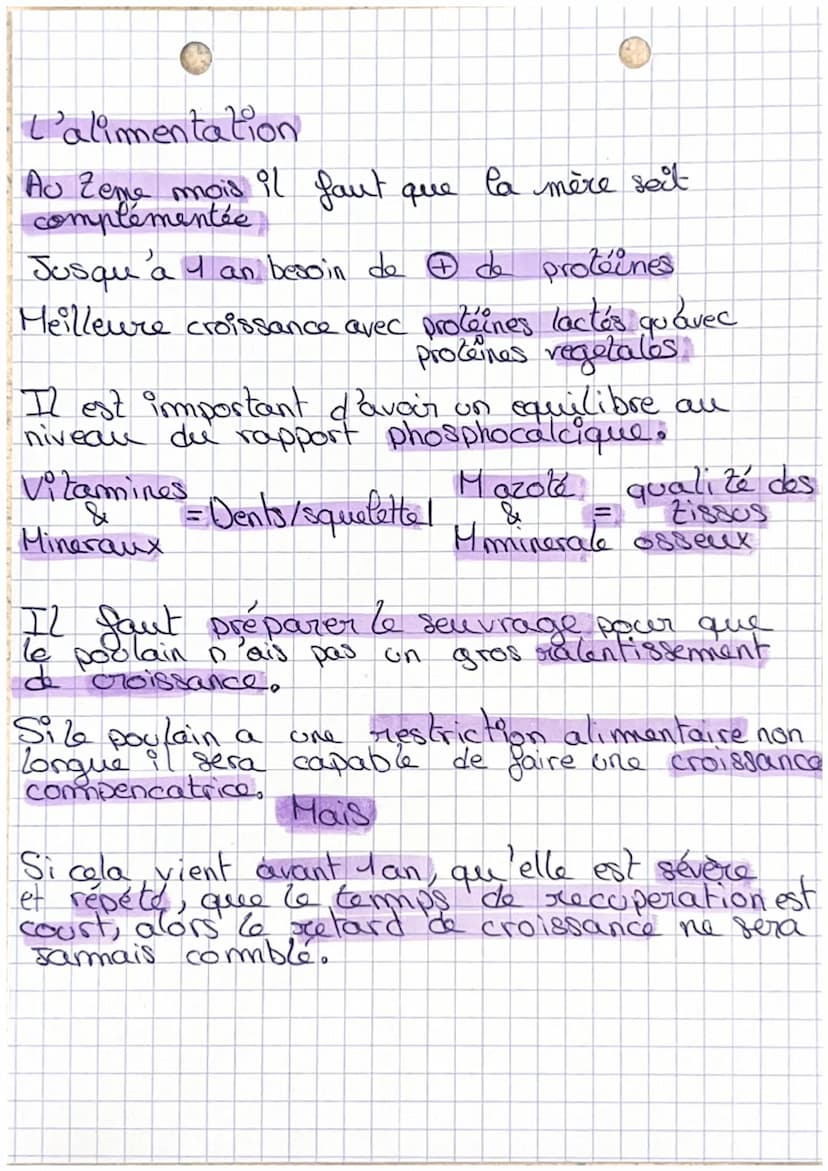 L'alimentation
Au 2eme mois il faut que la mère soit
complémentée
Jusqu'à 1 an besoin de ⊕ de protéines
Meilleure croissance avec protéines lactés qu'avec
protéines vegetales.
Il est important d'avoir un equilibre au
niveau du rapport phosphocalcique.
Vitamines & Mineraux = Dents/squelette ! M azoté & M minerale = qualité des tissus osseux
Il faut préparer le seuvrage pour que
le poulain n'ais pas un gros ralentissement
de croissance.
Si le poulain a une restriction alimentaire non
longue il sera capable de faire une croissance
compencatrice.
Mais
Si cela vient avant 1 an, qu'elle est sévère
et répété, que le temps de recuperation est
court, alors le retard de croissance ne sera
jamais comblé.